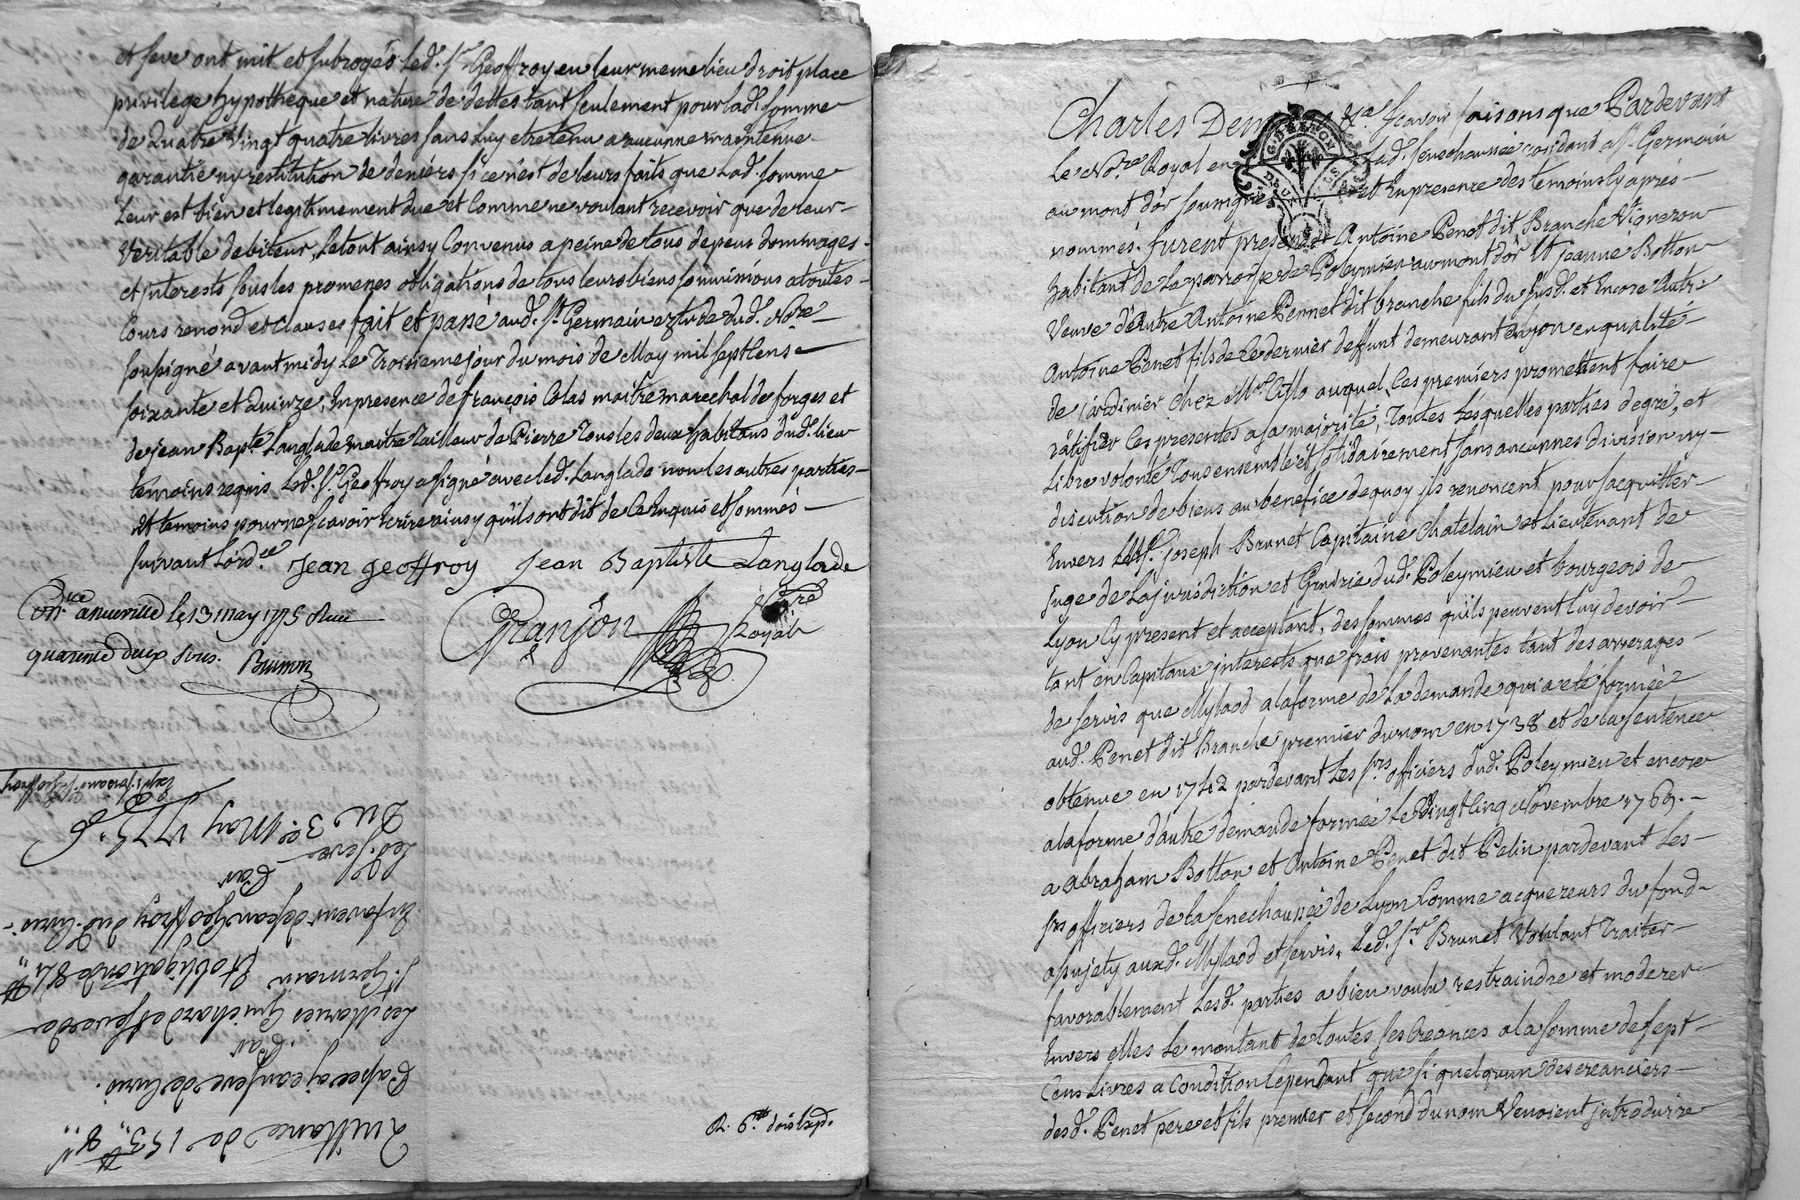 et seve ont mit et subrogés led. Sr Geoffroy en leur meme lieu droit place
privilege hypotheque et nature de dettes tant seulement pour lad. somme
de Quatre Vingt quatre livres sans luy etre tenu a aucunne maintenue
garantie ny restitution de deniérs si ce n'est de leurs faits que Lad. somme
Leur est bien et legitimement due et Comme ne voulant recevoir que de leur
Veritable debiteur, Le tout ainsy Convenus a peine de tous depens dommages
et interests sous les promeses obligations de tous leurs biens soumissions a toutes
Cours renond et Clauses fait et passé aud. St Germain etude dud. Nore
soussigné avant midy Le Troisieme jour du mois de May mil sept Cens
soixante et Quinze, En presence de françois Colas maitre marechal de forges et
de jean Bapte Langlade maitre Tailleur de Pierre Tous les deux habitans dud. lieu
temoins requis Led. Sr Geoffroy a signé avec led. Langlade non les autres parties
et temoins pour ne scavoir ecrire ainsy qu'ils ont dit de Ce Enquis et sommés
suivant Lordce Jean geoffroy Jean Baptiste Langlade
Granjon Nore Royal
le 13 may 1775 Reçu
quarente deux sous.
R. 6tt dois
Quittance de 153tt 8s
Passée a jean seve de
Par
Les Maries Guichard et seve de
St Germain Et obligation de 84tt
En faveur de jean Geoffroy dud.
Par
Led. seve
Du 3e May 1775
Charles Den &a scavoir faisons que Pardevant
Le Nore Royal en lad. senechaussée residant a St Germain
au mont d'or soussigné et En presence des temoins cy aprés
nommés. furent presents Antoine Penet dit Branche Vigneron
habitant de La parroisse de Poleymieu au mont d'or Et jeanne Botton
Veuve d'autre Antoine Pennet dit branche fils du susd. et Encore Autre
Antoine Penet fils de Ce dernier deffunt demeurant Lyon en qualité
de jardinier Chez Mr auquel Ces premiers promettent faire
ratifier Ces presentes a sa majorité, Toutes Lesquelles parties de gré, et
Libre volonté Tous ensemble et solidairement sans aucunnes division ny
discution de biens au benefice de quoy ils renoncent pour s'acquitter
Envers Sr. joseph Brunet Capitaine Chatelain et Lieutenant de
juge de La jurisdiction et Gruërie dud. Poleymieu et bourgeois de
Lyon Cy present et acceptant, des sommes qu'ils peuvent luy devoir
tant en Capitaux interests que frais provenantes tant des arrerages
de servis que Mylaod a la forme de La demande qui a eté formée
aud. Penet dit Branche premier du nom en 1738 et de la sentence
obtenue en 1742 pardevant Les Srs officiers dud. Poleymieu et encore
a la forme d'autre demande formée Le Vingt Cinq Novembre 1769.
a Abraham Botton et Antoine Penet dit Pelin pardevant Les
Srs officiers de la senechaussée de Lyon Comme acquereurs du fond
assujety auxd. Mylaod et servis, Led. Sr Brunet Voulant Traiter
favorablement Lesd. parties a bien voulu restraindre et moderer
Envers elles Le montant de toutes ses Creances a la somme de sept
Cens Livres a Condition Cependant que si quelqu'un des creanciers
desd. Penet pere et fils premier et second du nom Venoient introduire